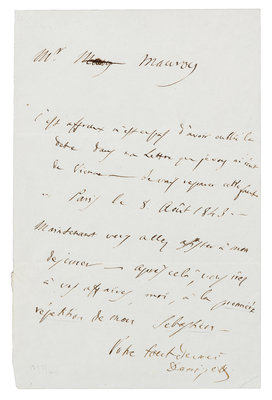 Mr. Mauroy
C'est affreux n'est ce pas d'avoir oublié la
date dans ma Lettre que je vous
de Vienne — vous
— Paris le 8. Août 1843 —
Maintenant vous allez assister à mon
dejeuner — après cela, vous irez
à vos affaires, moi, à la première
répétition de mon Sebastien —
Votre tout devoué
Donizetti